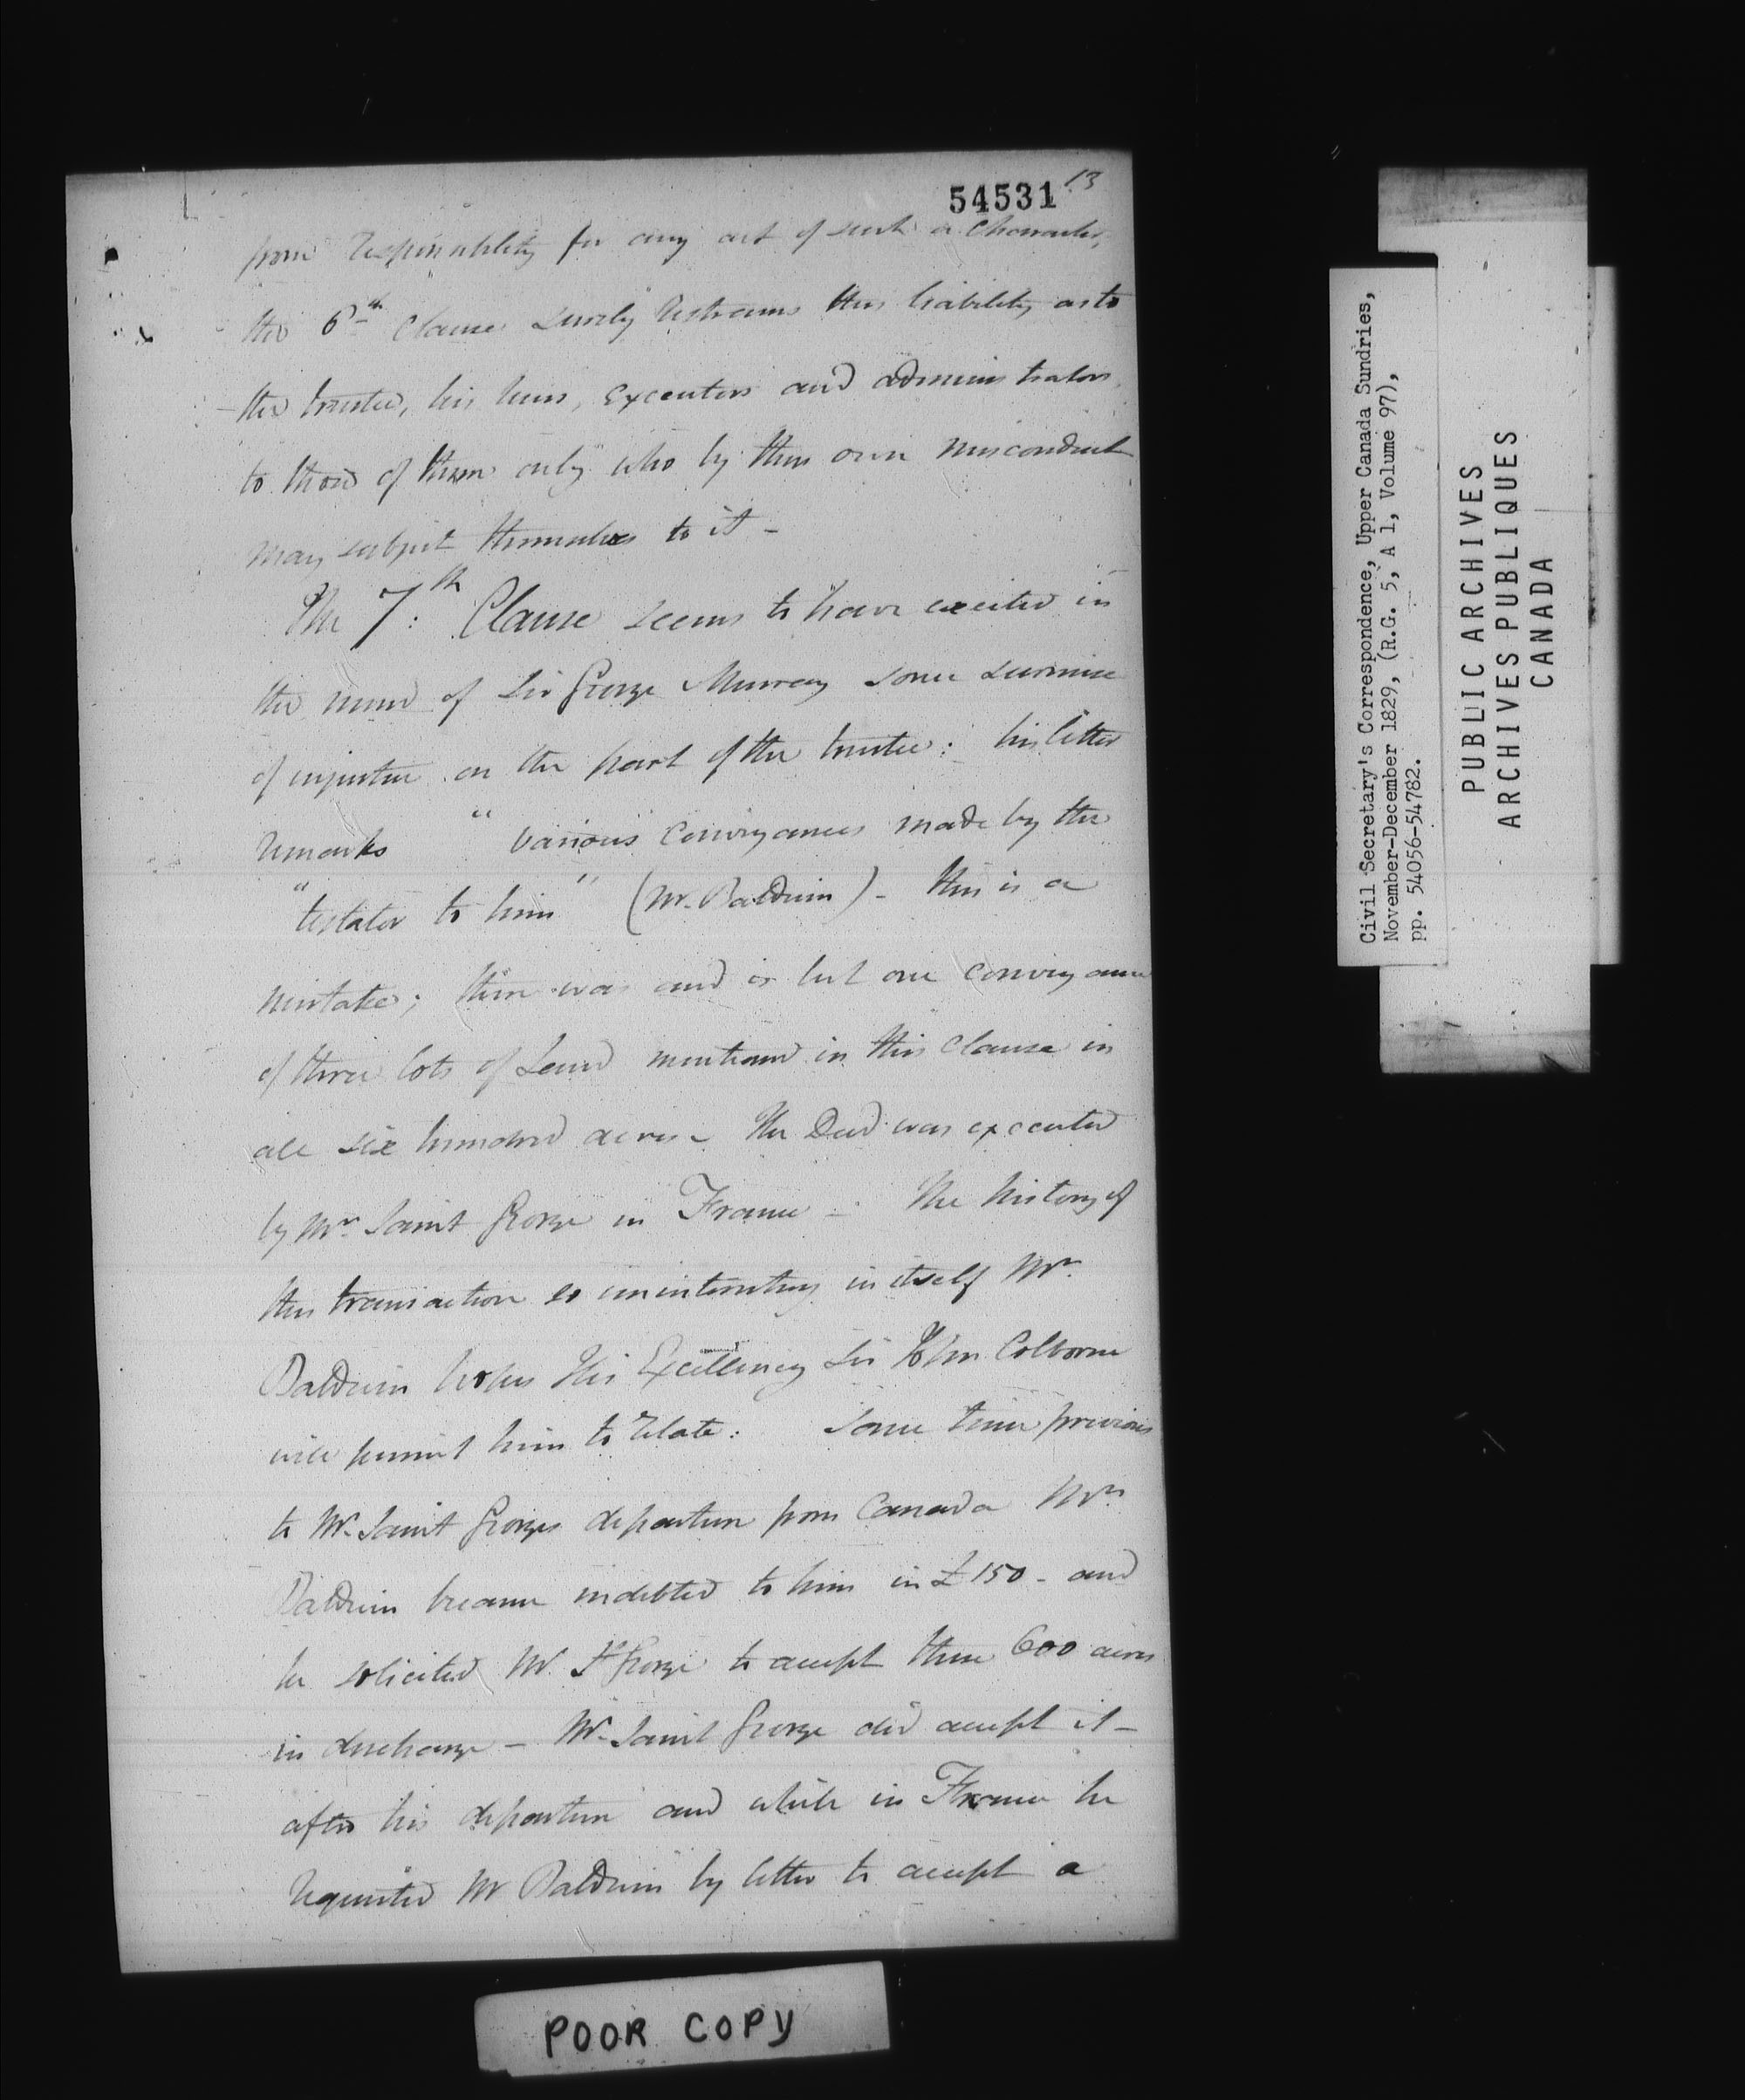 54531 13
from responsibility for any act of such a Character,
the 6th Clause surely restrains this liability as to
the trustee, his heirs, executors and administrators
to those of them only who by their own misconduct
may subject themselves to it -
The 7th Clause seems to have excited in
the mind of Sir George Murray some surmise
of injustice on the part of the trustee: his letter
remarks " various conveyances made by the
" testator to him " (Mr. Baldwin) - this is a
mistake; there was and is but one conveyance
of three lots of Land mentioned in this clause in
all six hundred acres - The Deed was executed
by Mr. Saint George in France - The history of
this transaction so uninteresting in itself Mr.
Baldwin hopes His Excellency Sir John Colborne
will permit him to relate: Some time previous
to Mr. Saint Georges departure from Canada Mr.
Baldwin became indebted to him in £150 - and
he solicited Mr. St George to accept these 600 acres
in discharge - Mr. Saint George did accept it -
after his departure and while in France he
requested Mr Baldwin by letter to accept a
POOR COPY
Civil Secretary's Correspondence, Upper Canada Sundries,
November-December 1829, (R.G. 5, A 1, Volume 97),
pp. 54056-54782.
PUBLIC ARCHIVES
ARCHIVES PUBLIQUES
CANADA